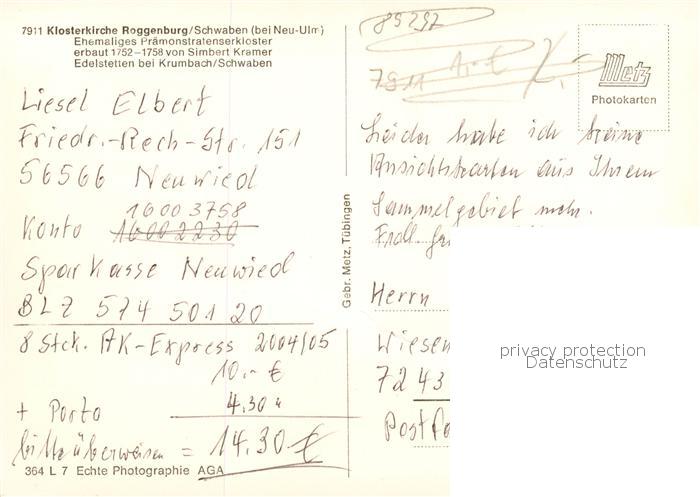 7911 Klosterkirche Roggenburg/Schwaben (bei Neu-Ulm)
Ehemaliges Prämonstratenserkloster
erbaut 1752-1758 von Simbert Kramer
Edelstetten bei Krumbach/Schwaben
Liesel Elbert
Friedr.-Rech-Str. 151
56566 Neuwied
16003758
Konto 16002230
Sparkasse Neuwied
BLZ 574 501 20
8 Stck. AK-Express 2004/05
10.- €
+ Porto 4.30 "
bitte überweisen = 14.30 €
364 L 7 Echte Photographie AGA
Gebr. Metz, Tübingen
89297
7911 1,- €
Metz
Photokarten
Leider habe ich keine
Ansichtskarten aus Ihrem
Sammelgebiet mehr.
Frdl.
Herrn
Wiesen
7243
PostPo
privacy protection
Datenschutz